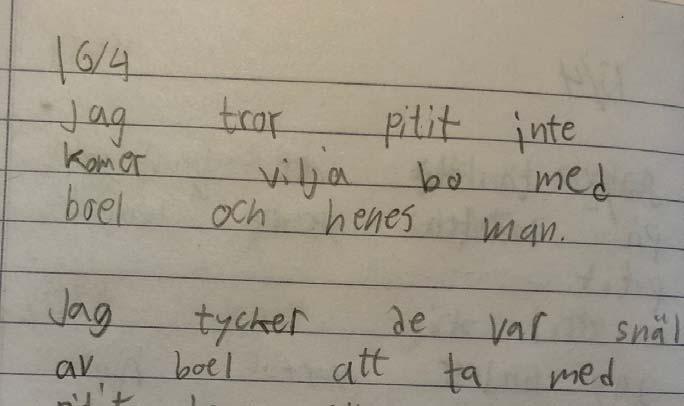 16/4
Jag tror pitit inte
komer vilja bo med
boel och henes man.
Jag tycker de var snäl
av boel att ta med